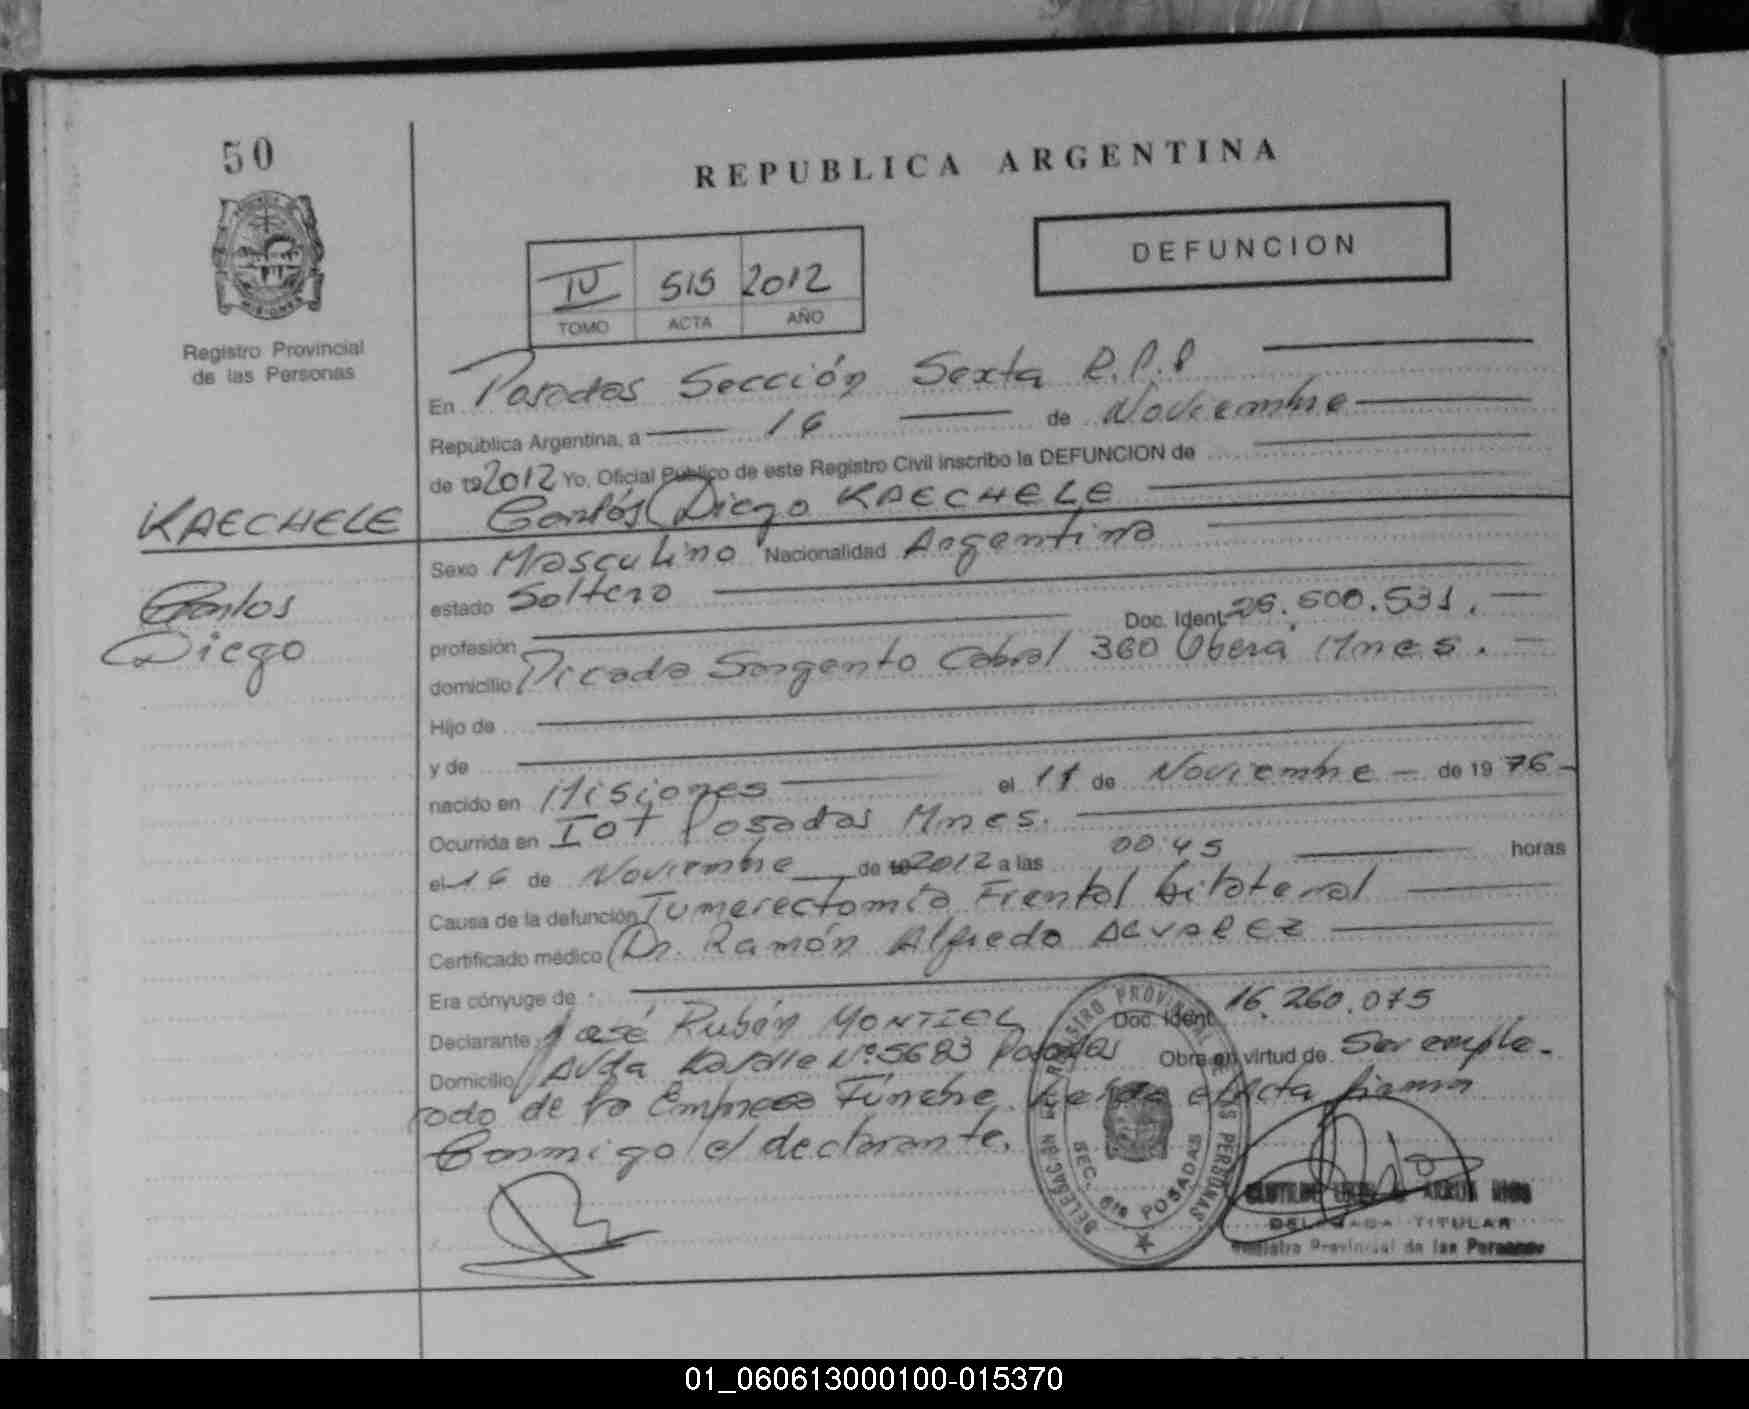 50
REPUBLICA ARGENTINA
DEFUNCION
IV 515 2012
TOMO ACTA AÑO
Registro Provincial
de las Personas
En Posadas Sección Sexta R.P.P
República Argentina, a 16 de Noviembre
de 192012 Yo, Oficial Público de este Registro Civil inscribo la DEFUNCION de
KAECHELE Carlos Diego KAECHELE
Carlos
Diego
Sexo Masculino Nacionalidad Argentina
estado Soltero
profesión Doc. Ident. 25.500.531.
domicilio Picada Sargento Cabral 360 Oberá Mnes.
Hijo de
y de
nacido en Misiones el 11 de Noviembre de 1976
Ocurrida en IOT Posadas Mnes.
el 16 de Noviembre de 192012 a las 00:45 horas
Causa de la defunción Tumerectomía Frental bilateral
Certificado médico Dr. Ramón Alfredo ALVAREZ
Era cónyuge de
Declarante José Rubén MONTIEL Doc. Ident. 16.260.075
Domicilio Avda Lavalle Nº 5683 Posadas Obra en virtud de Ser emple-
ado de la Empresa Fúnebre Leida el Acta firma
Conmigo el declarante.
DELEGACION REGISTRO PROVINCIAL DE LAS PERSONAS
SEC. 6ta POSADAS
DELEGADA TITULAR
Registro Provincial de las Personas
01_060613000100-015370